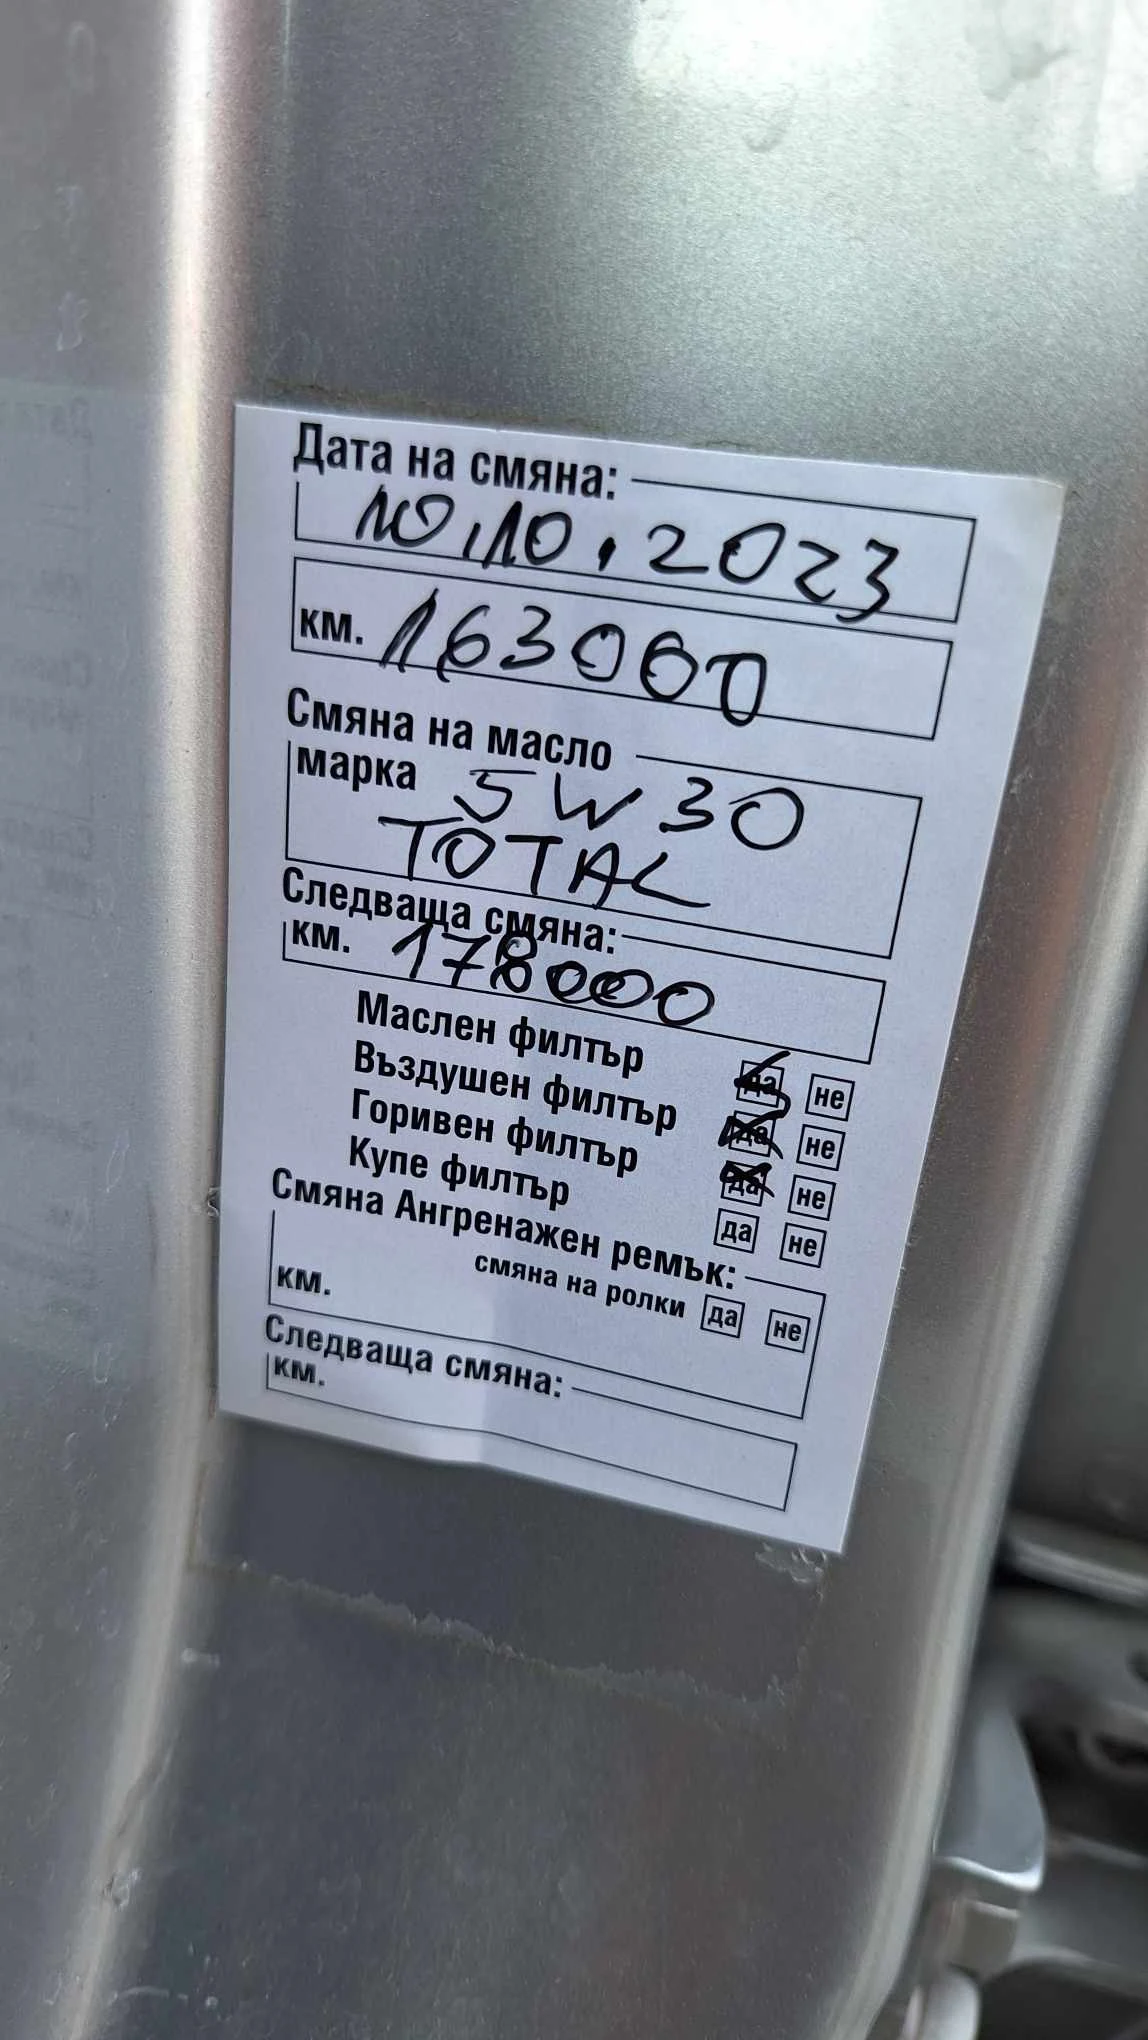 Дата на смяна:
10.10.2023
км. 163000
Смяна на масло
марка 5W30
TOTAL
Следваща смяна:
км. 178000
Маслен филтър да не
Въздушен филтър да не
Горивен филтър да не
Купе филтър да не
Смяна Ангренажен ремък:
смяна на ролки да не
км.
Следваща смяна:
км.